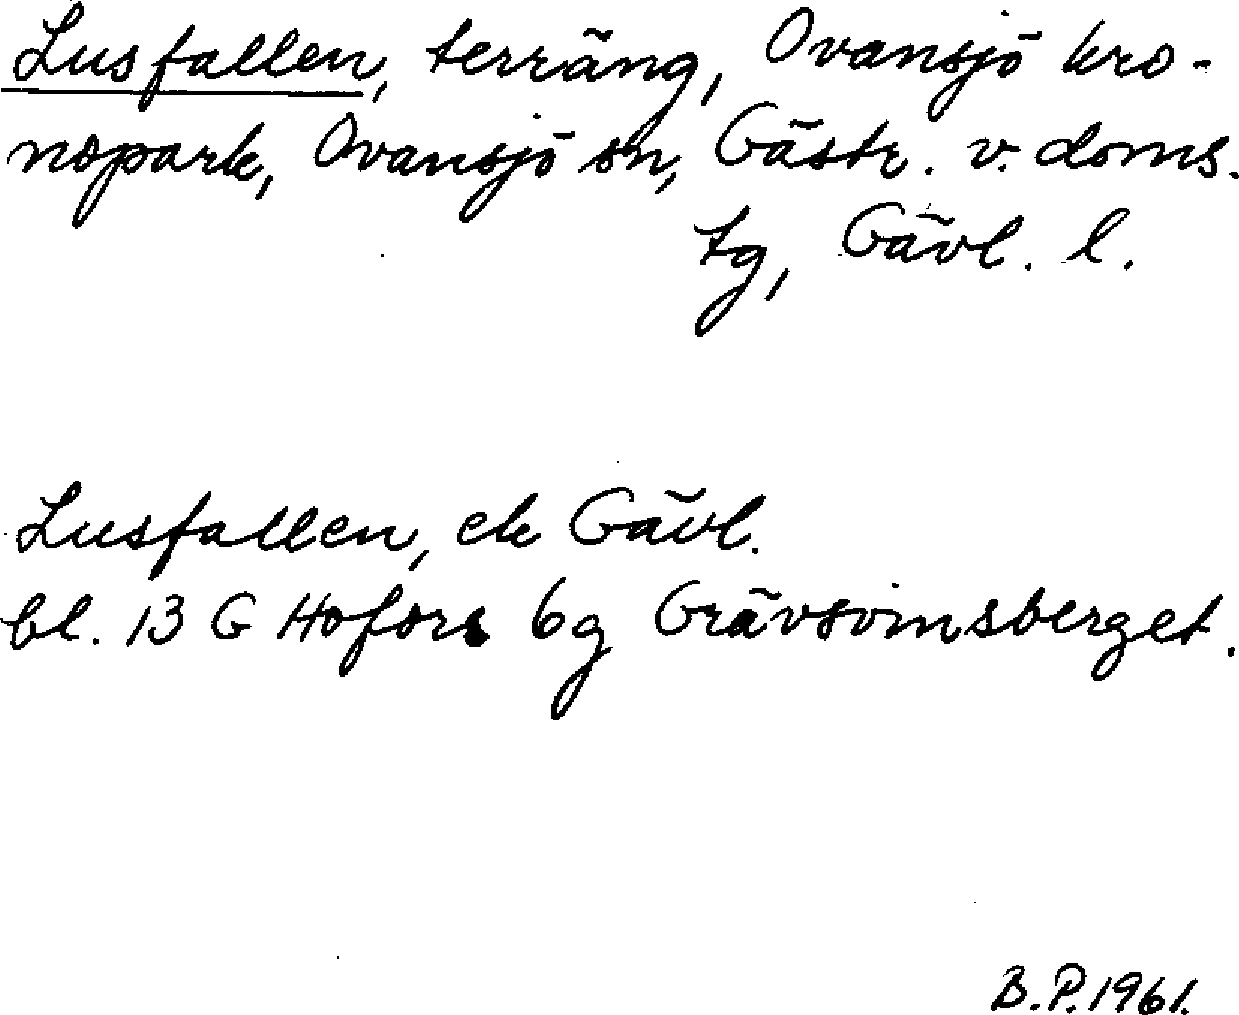 Lusfallen, terräng, Ovansjö kro-
nopark, Ovansjö sn, Gästr. v. doms.
tg, Gävl. l.
Lusfallen, ek Gävl.
bl. 13 G Hofors 6g Grävsvinsberget.
B.P. 1961.